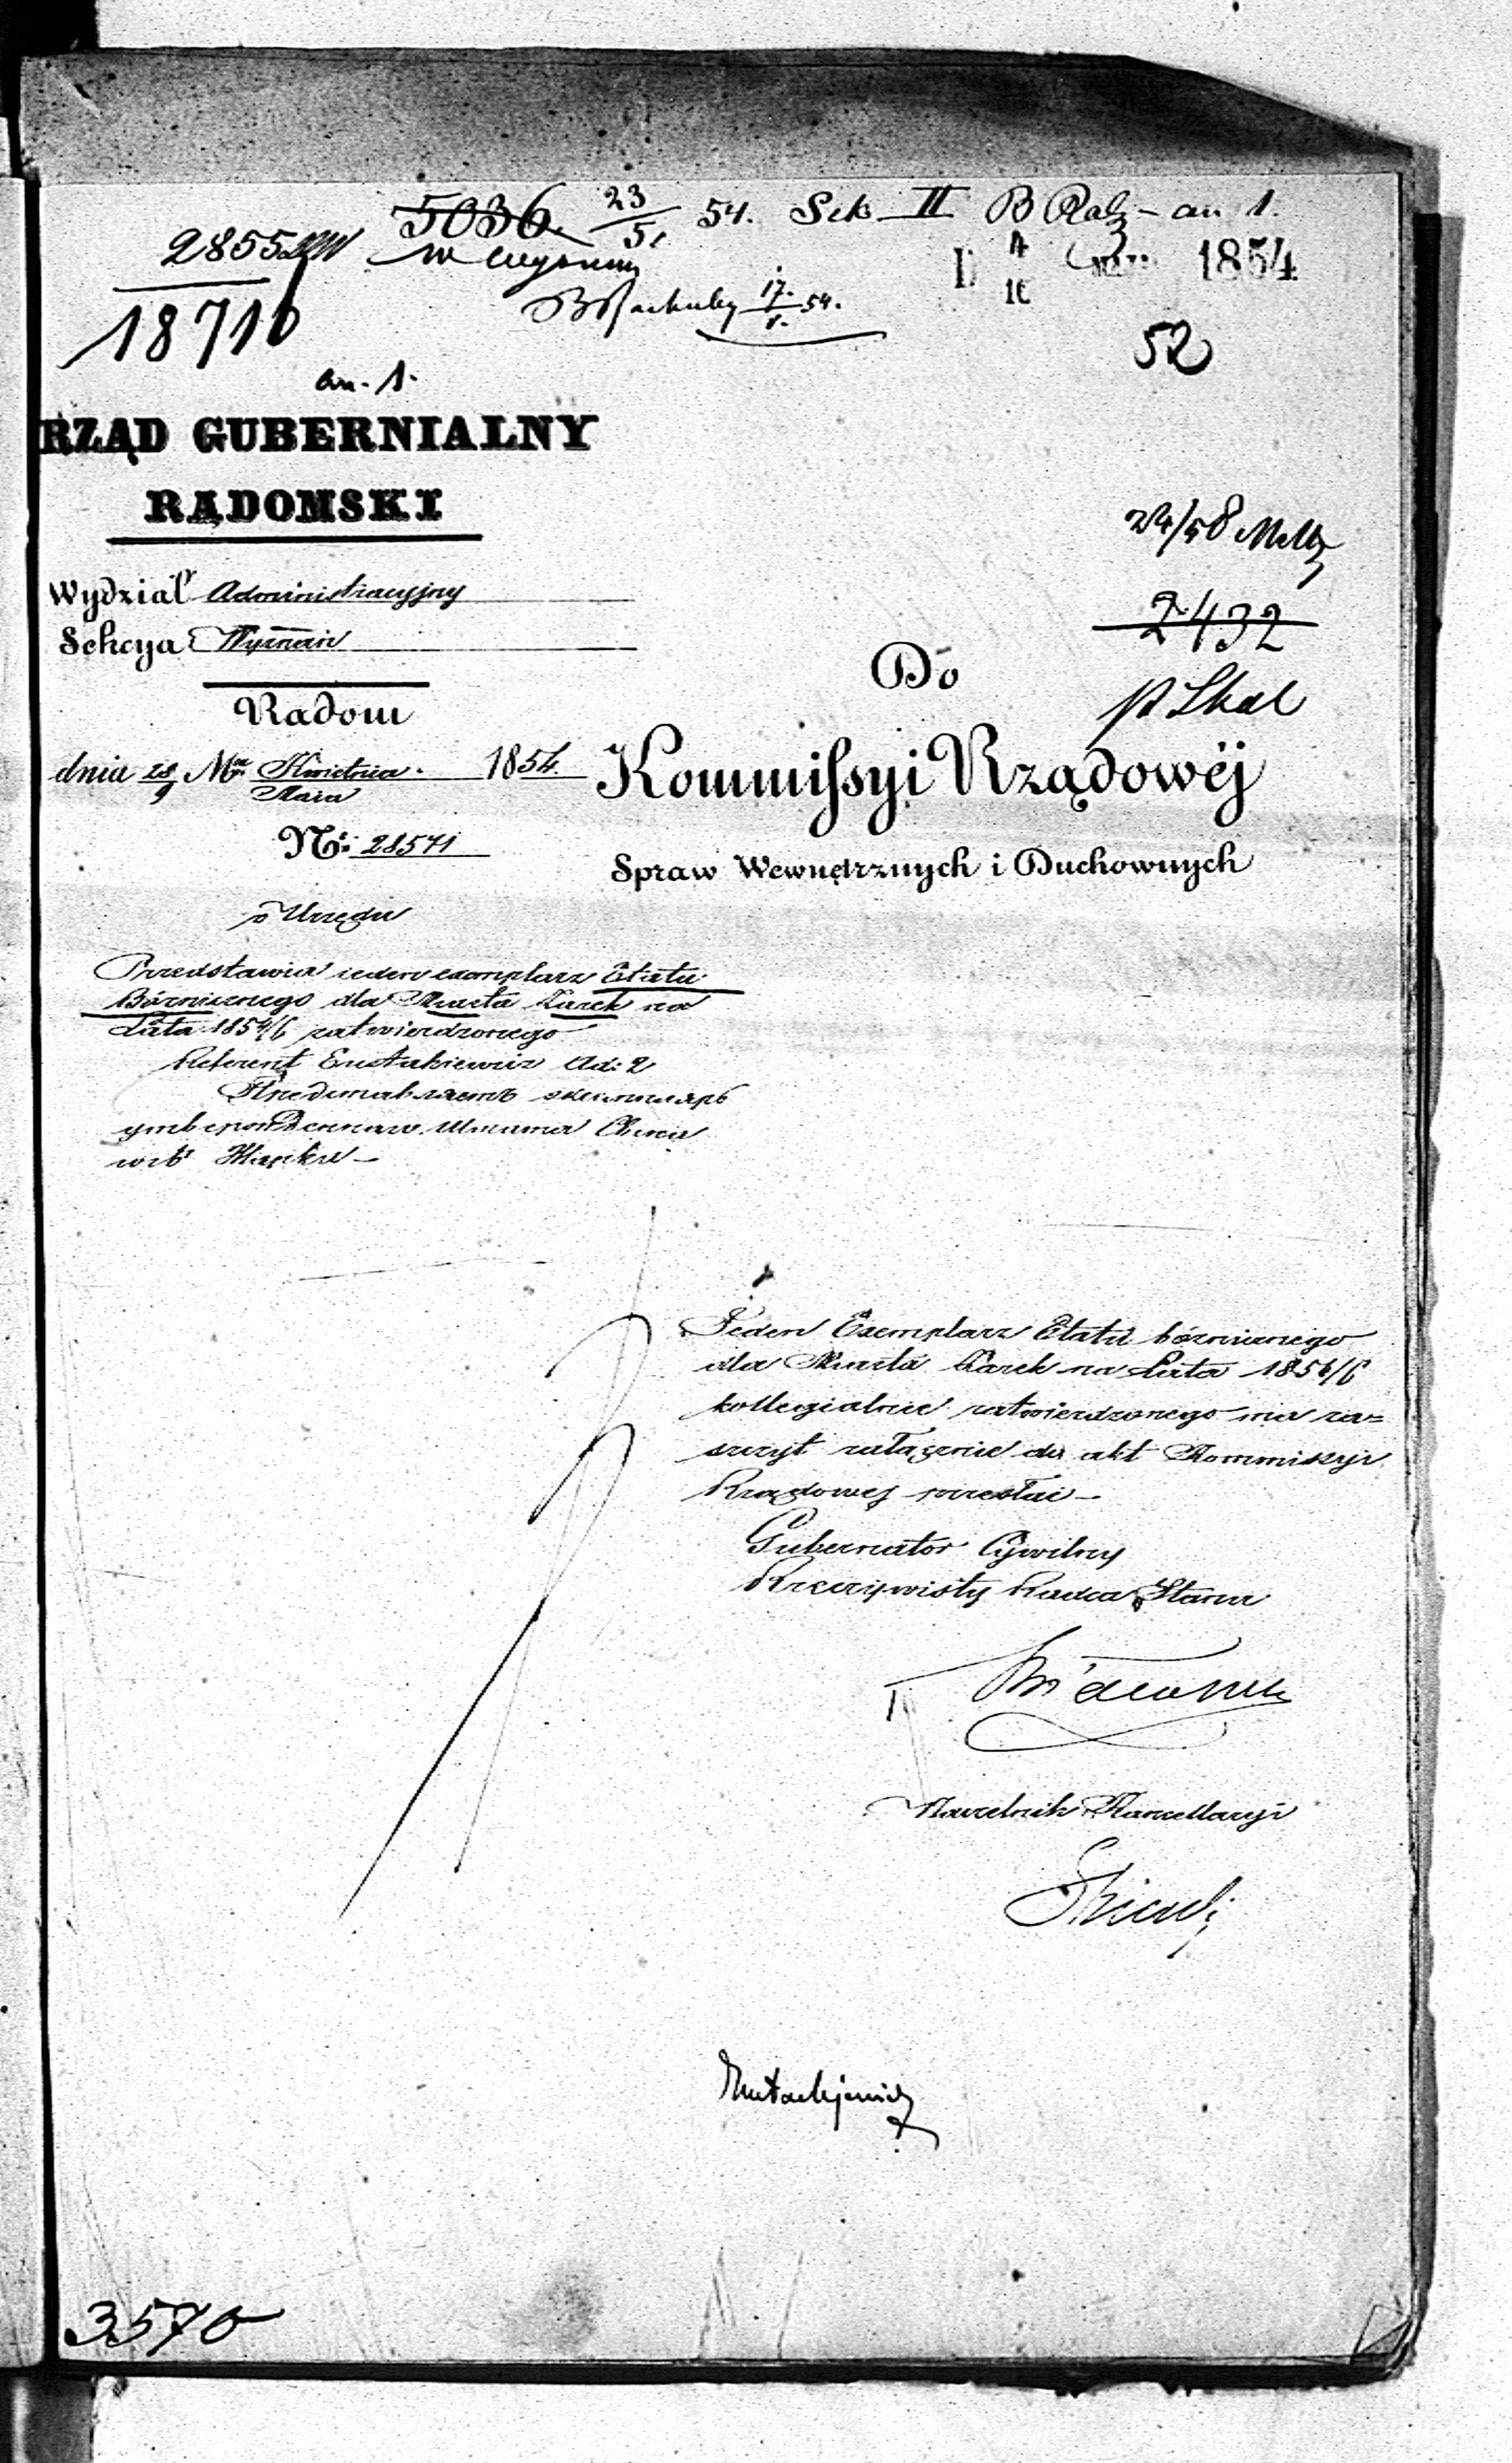 5036 23/5 54. Sek II B Ralz - an 1.
2855
18710
17. 54.
1854
52
an. 1.
RZĄD GUBERNIALNY
RADOMSKI
24/58
2432
Wydział Administracyjny
Sekcya Wyznań
Do
Radom
dnia 28/9 Mca Kwietnia 1854.
Maia
Kommissyi Rządowéj
No: 28571
Spraw Wewnętrznych i Duchownych
z Urzędu
Przedstawia ieden exemplarz Etatu
Bóżnicznego dla Miasta Żarek na
Lata 1854/6 zatwierdzonego
Referent Eustakiewicz
Jeden Exemplarz Etatu bóżnicznego
dla Miasta Żarek na Lata 1854/6
kollegialnie zatwierdzonego ma za=
szczyt załącznie do akt Kommissyi
Rządowej przesłać -
Gubernator Cywilny
Rzeczywisty Radca Stanu
Naczelnik Kancellaryi
3570